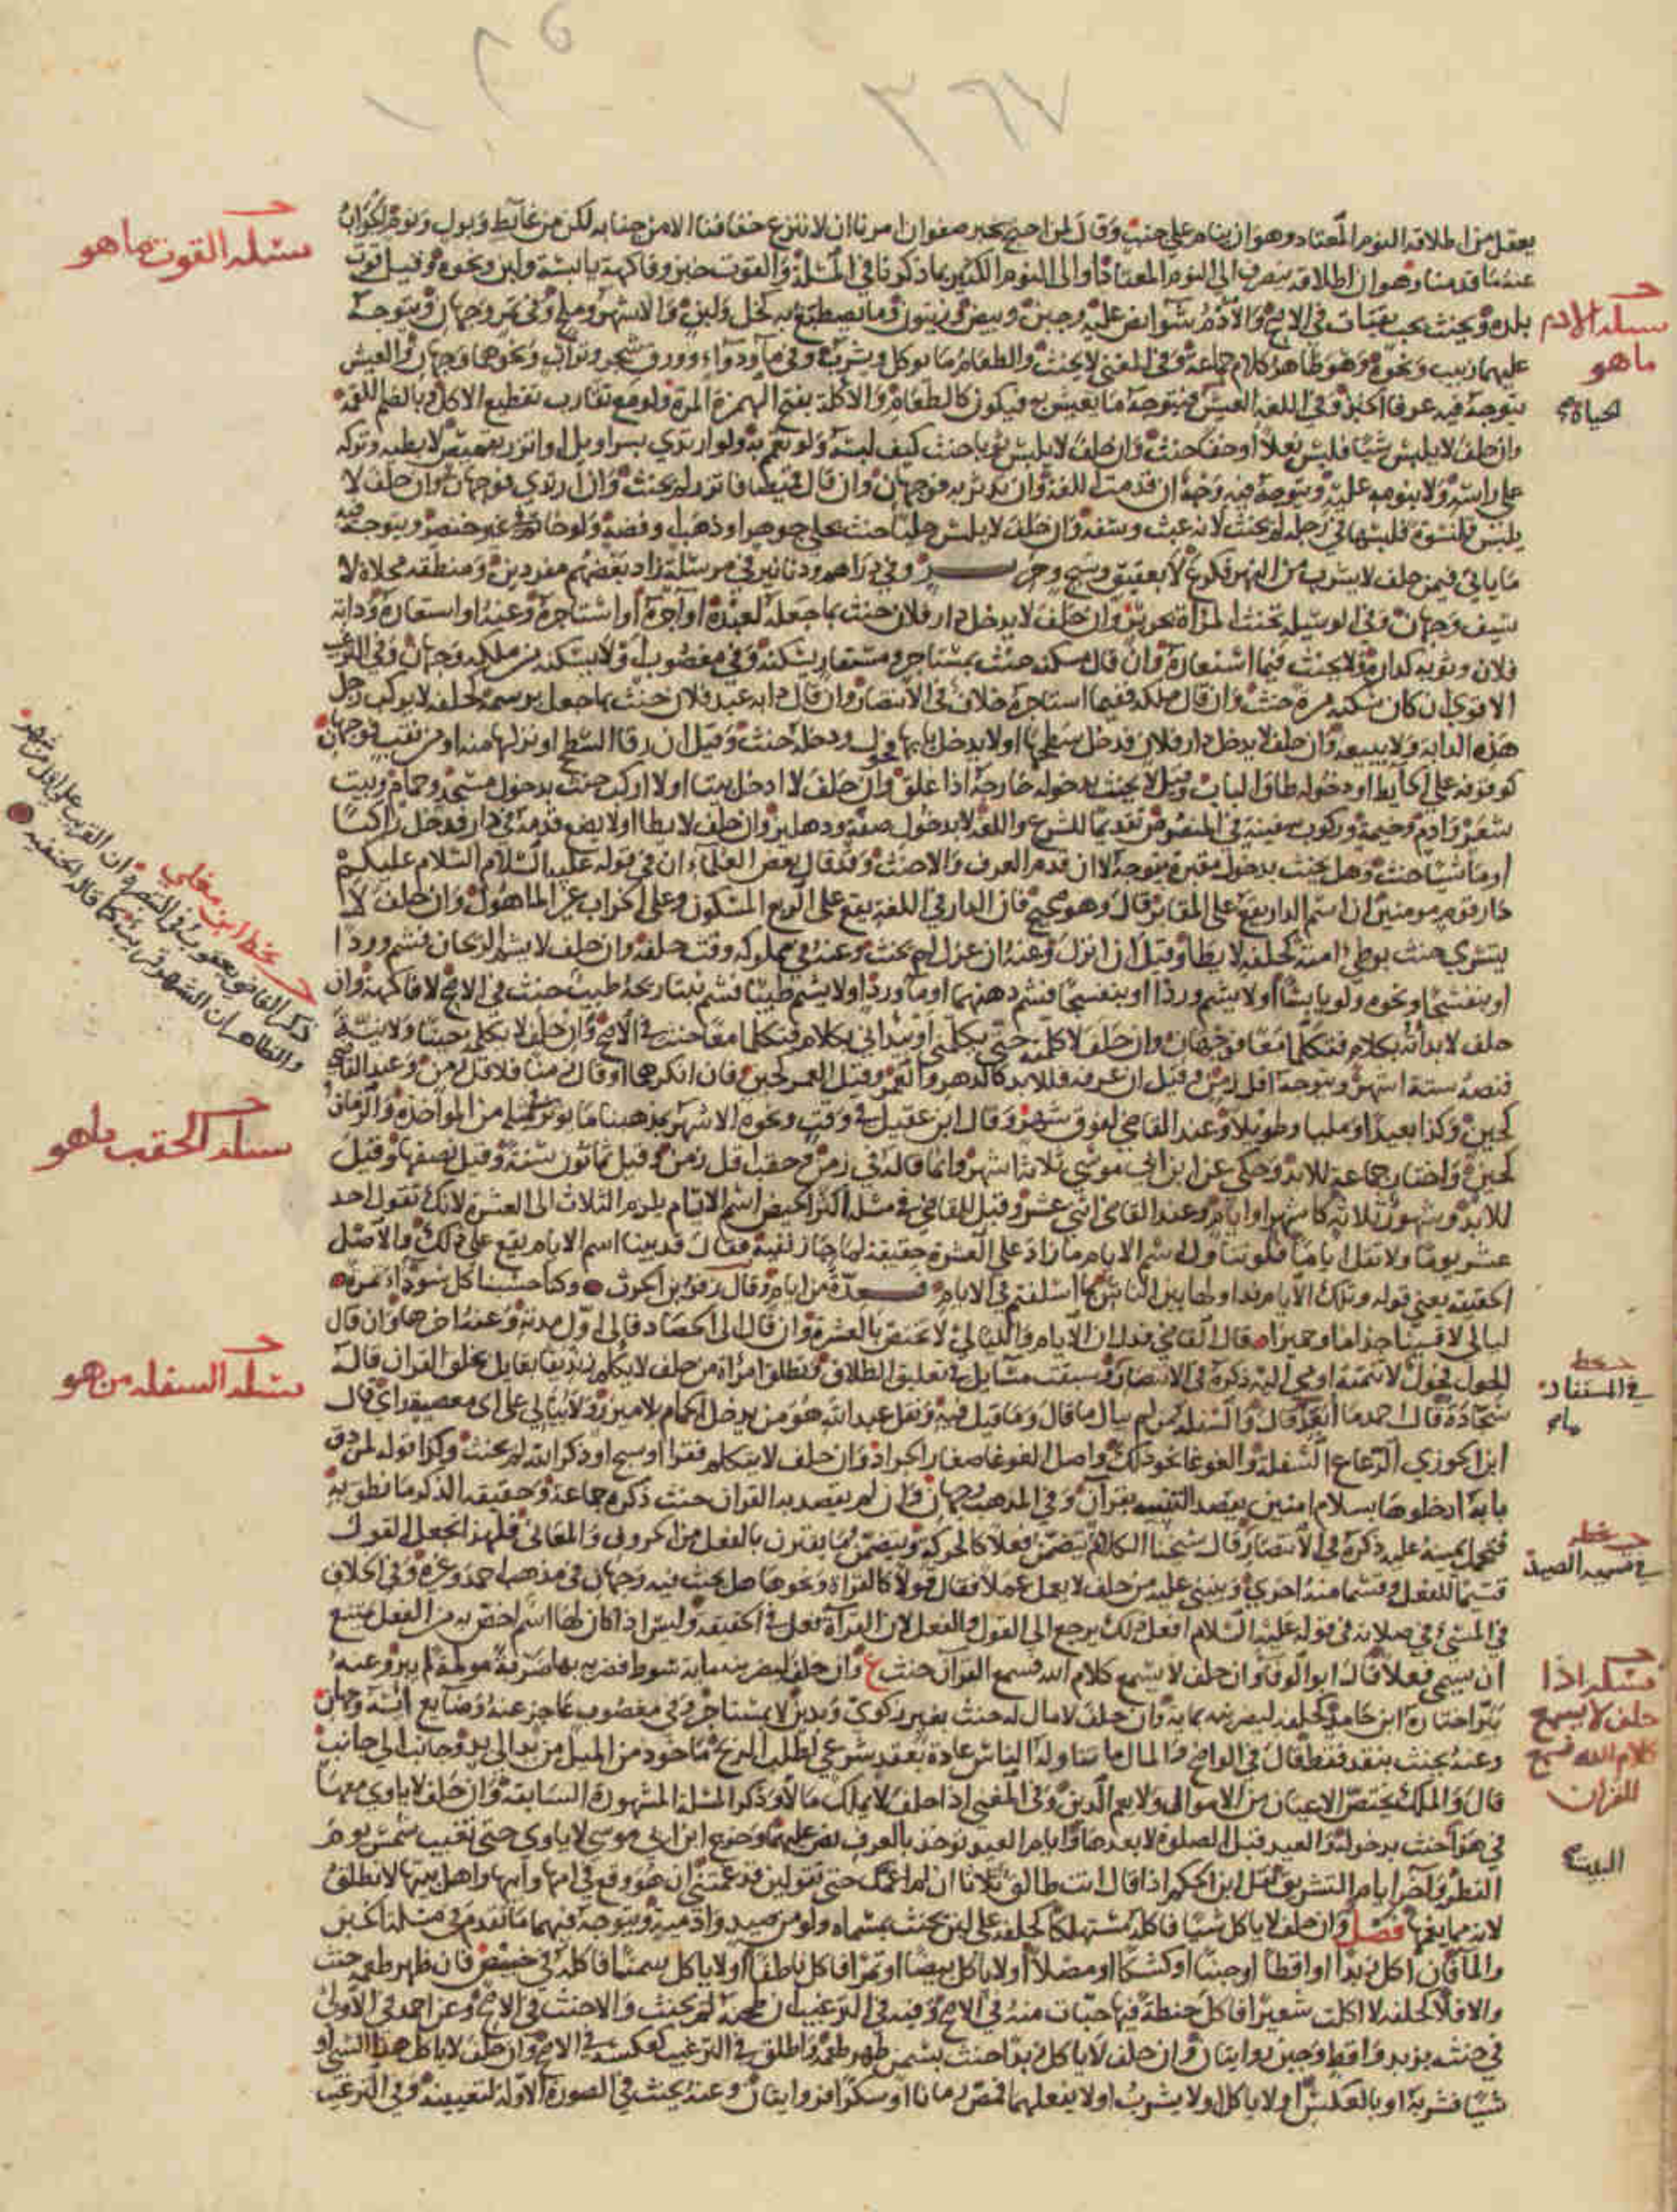 ٣٦٧
يعقل من اطلاقه النوم المعتاد وهو ان ينام على جنب وقال لمن احتج بخبر صفوان امرنا ان لا ننزع خفافنا الا من جنابة لكن من غايط وبول ونوم الجواب
عنه ما قدمنا وهو ان اطلاقه ينصرف الى النوم المعتاد او الى النوم الكثير بما ذكرنا في المسئلة والقوت خبز وفاكهة يابسة ولبن ونحوه وقيل قوت
بلده ويحنث بحب يقتات في الاصح والادم شوا نص عليه وجبن وبيض وزيتون وما يصطبغ به كخل ولبن والاشهر وملح وفي تمر وجهان ويتوجه
عليهما زبيب ونحوه وهو ظاهر كلام جماعة وفي المغني لا يحنث والطعام ما يوكل ويشرب وفي ما ودواء وورق شجر وتراب ونحوها وجهان والعيش
يتوجه فيه عرفا الخبز وفي اللغة العيش فيتوجه ما يعيش به فيكون كالطعام والاكلة بفتح الهمزة المرة ولو مع تقارب تقطيع الاكل وبالضم اللقمة
وان حلف لا يلبس شيا فلبس نعلا او خفا حنث وان حلف لا يلبس ثوبا حنث كيف لبسه ولو تعمم به ولو ارتدى بسراويل او اتزر بقميص لا بطيه وتركه
على راسه ولا بنومه عليه ويتوجه فيه وجه ان قدمت اللغة وان تدثر به فوجهان وان قال قميصا فاتزر لم يحنث وان ارتدى فوجهان وان حلف لا
يلبس قلنسوة فلبسها في رجله لم يحنث لانه عبث وسفه وان حلف لا يلبس حليا حنث بحلي جوهر او ذهب او فضة ولو خاتم في غير خنصر ويتوجه فيه
ما ياتي فيمن حلف لا يشرب من النهر فكرع لا بعقيق وسبج وحرير وفي دراهم ودنانير في مرسلة زاد بعضهم مفردين ومنطقة محلاة لا
سيف وجهان وفي الوسيلة تحنث المراة بحرير وان حلف لا يدخل دار فلان حنث بما جعله لعبده او اجره او استاجره وعنه او استعاره ودابة
فلان وثوبه كداره ولا يحنث فيما استعاره وان قال مسكنه حنث بمستاجر ومستعار يسكنه وفي مغصوب او لا يسكنه من ملكه وجهان وفي الترغيب
الاقوى ان كان سكنه مرة حنث وان قال ملكه ففيما استاجره خلاف في الانتصار وان قال دابة عبد فلان حنث بما جعل برسمه كحلفه لا يركب رحل
هذه الدابة ولا يبيعه وان حلف لا يدخل دار فلان فدخل سطحها او لا يدخل بابها فحول ودخله حنث وقيل ان رقا السطح او نزلها منه او من نقب فوجهان
كوقوفه على الحايط او دخوله طاق الباب وقيل لا يحنث بدخوله خارجه اذا غلق وان حلف لا ادخل بيتا او لا اركب حنث بدخول مسجد وحمام وبيت
شعر وادم وخيمة وركوب سفينة في المنصوص تقديما للشرع واللغة لا بدخول صفة ودهليز وان حلف لا يطا او لا يضع قدمه في دار فدخل راكبا
او ماشيا حنث وهل يحنث بدخول مقبرة يتوجه لا ان قدم العرف والا حنث وقد قال بعض العلماء ان في قوله عليه السلام السلام عليكم
دار قوم مومنين ان اسم الدار يقع على المقابر قال وهو صحيح فان الدار في اللغة يقع على الربع المسكون وعلى الخراب غير الماهول وان حلف لا
يتسرى حنث بوطئ امته كحلفه لا يطا وقيل ان انزل وعنه ان عزل لم يحنث وعنه في مملوكه وقت حلفه وان حلف لا يشم الريحان فشم وردا
او بنفسجا ونحوه ولو يابسا او لا يشم وردا او بنفسجا فشم دهنهما او ما ورد او لا يشم طيبا فشم نبتا ريحه طيب حنث في الاصح لا فاكهة وان
حلف لا بداته بكلام فتكلما معا فوجهان وان حلف لا كلمته حتى يكلمني او يبداني بكلام فتكلما معا حنث في الاصح وان حلف لا يكلمه حينا ولا نية
فنصه ستة اشهر ويتوجه اقل زمن وقيل ان عرفه فللابد كالدهر والعمر وقيل العمر كحين فان انكرهما او قال زمنا فلاقل زمن وعند القاضي
كحين وكذا بعيدا او مليا وطويلا وعند القاضي لفوق شهر وقال ابن عقيل في وقت ونحوه الاشهر بمذهبنا ما يوثر مثله من المواخذة والزمان
كحين واختار جماعة للابد وحكي عن ابن ابي موسى ثلاثة اشهر وانما قاله في زمن وحقبا اقل زمن وقيل ثمانون سنة وقيل نصفها وقيل
للابد وشهور ثلاثة كاشهر او ايام وعند القاضي اثني عشر وقيل للقاضي في مسئلة اكثر الحيض اسم الايام يلزم الثلاث الى العشرة لانك تقول احد
عشر يوما ولا تقل اياما فلو تناول اسم الايام ما زاد على العشرة حقيقة لما جاز نفيه فقال قد بينا اسم الايام يقع على ذلك والاصل
الحقيقة يعني قوله وتلك الايام نداولها بين الناس بما اسلفتم في الايام فعدة من ايام وقال زفر بن الحرث وكنا حسبنا كل سوداء تمرة
ليالي لاقينا جذاما وحميرا قال القاضي فدل ان الايام والليالي لا تختص بالعشرة وان قال الى الحصاد فالى اول مدته وعنه اخرها وان قال
الحول فحول لا تتمته اومى اليه ذكره في الانتصار وسبقت مسايل في تعليق الطلاق وتطلق امراة من حلف لا يكلم زنديقا بقايل بخلق القران قاله
سجادة قال احمد ما ابعد قال والسفلة من لم يبال ما قال وما قيل فيه ونقل عبد الله هو من يدخل الحمام بلا ميزر ولا يبالي على اي معصية راي قال
ابن الجوزي الرعاع السفلة والغوغا نحو ذلك واصل الغوغا صغار الجراد وان حلف لا يتكلم فقرا او سبح او ذكر الله لم يحنث وكذا قوله لمن دق
بابه ادخلوها بسلام امنين يقصد التنبيه بقران وفي المذهب وجهان وان لم يقصد به القران حنث ذكره جماعة وحقيقة الذكر ما نطق به
فتحمل يمينه عليه ذكره في الانتصار قال شيخنا الكلام يتضمن فعلا كالحركة ويتضمن ما يقترن بالفعل من الحروف والمعاني فلهذا نجعل القول
قسيما للفعل وقسما منه اخرى وينبني عليه من حلف لا يعمل عملا فقال قولا كالقراة ونحوها هل يحنث فيه وجهان في مذهب احمد وغيره وفي الخلاف
في المسيء في صلاته في قوله عليه السلام افعل ذلك يرجع الى القول والفعل لان القراة فعل في الحقيقة وليس اذا كان لها اسم اخص به من الفعل يمتنع
ان يسمى فعلا قال ابو الوفا وان حلف لا يسمع كلام الله فسمع القران حنث ع وان حلف ليضربنه ماية سوط فضربه بها ضربة مولمة لم يبر وعنه
يبر اختاره ابن حامد كحلفه ليضربنه بماية وان حلف لا مال له حنث بغير زكوي وبدين لا بمستاجر وفي مغصوب عاجز عنه وضايع ايسه وجهان
وعنه يحنث بنقد فقط قال في الواضح والمال ما تناوله الناس عادة بعقد شرعي لطلب الربح ماخوذ من الميل من يد الى يد وجانب الى جانب
قال والملك يختص الاعيان من الاموال ولا يعم الدين وفي المغني اذا حلف لا يملك مالا وذكر المسئلة المشهورة السابقة وان حلف لا ياوي معها
في هوا حنث بدخوله والعيد قبل الصلوة لا بعدها وايام العيد توخذ بالعرف نص عليهما وخرج ابن ابي موسى لا ياوي حتى تغيب شمس يوم
الفطر واخر ايام التشريق نقل ابن الحكم اذا قال انت طالق ثلاثا ان لم اغمك حتى تقولين قد غممتني ان هو وقع في امها وابيها واهل بيتها لا تطلق
لانه مما يغمها فصل وان حلف لا ياكل شيا فاكله مستهلكا كحلفه على لبن يحنث بمسماه ولو من صيد وادمية ويتوجه فيهما ما تقدم في مسئلة الخبز
والما فان اكل زبدا او اقطا او جبنا او كشكا او مصلا او لا ياكل بيضا او تمرا فاكل ناطفا او لا ياكل سمنا فاكله في خبيص فان ظهر طعمه حنث
والا فلا كحلفه لا اكلت شعيرا فاكل حنطة فيها حبات منه في الاصح وفيه في الترغيب ان طحنه لم يحنث والا حنث في الاصح وعن احمد في الاولى
في حنثه بزبد واقط وجبن روايتان وان حلف لا ياكل زبدا حنث بسمن ظهر طعمه واطلق في الترغيب كعكسه في الاصح وان حلف لا ياكل هذا الشي او
شيا فشربه او بالعكس او لا ياكل او لا يشرب او لا يفعلهما فمص رمانا او سكرا فروايتان وعنه يحنث في الصورة الاولة لتعيينه وفي الترغيب
مسئلة القوت ما هو
مسئلة الادم
ما هو
بخط ابن مغلي
ذكر القاضي يعقوب
مسئلة الحقب ما هو
مسئلة السفلة من هو
مسئلة اذا
حلف لا يسمع
كلام الله فسمع
القران